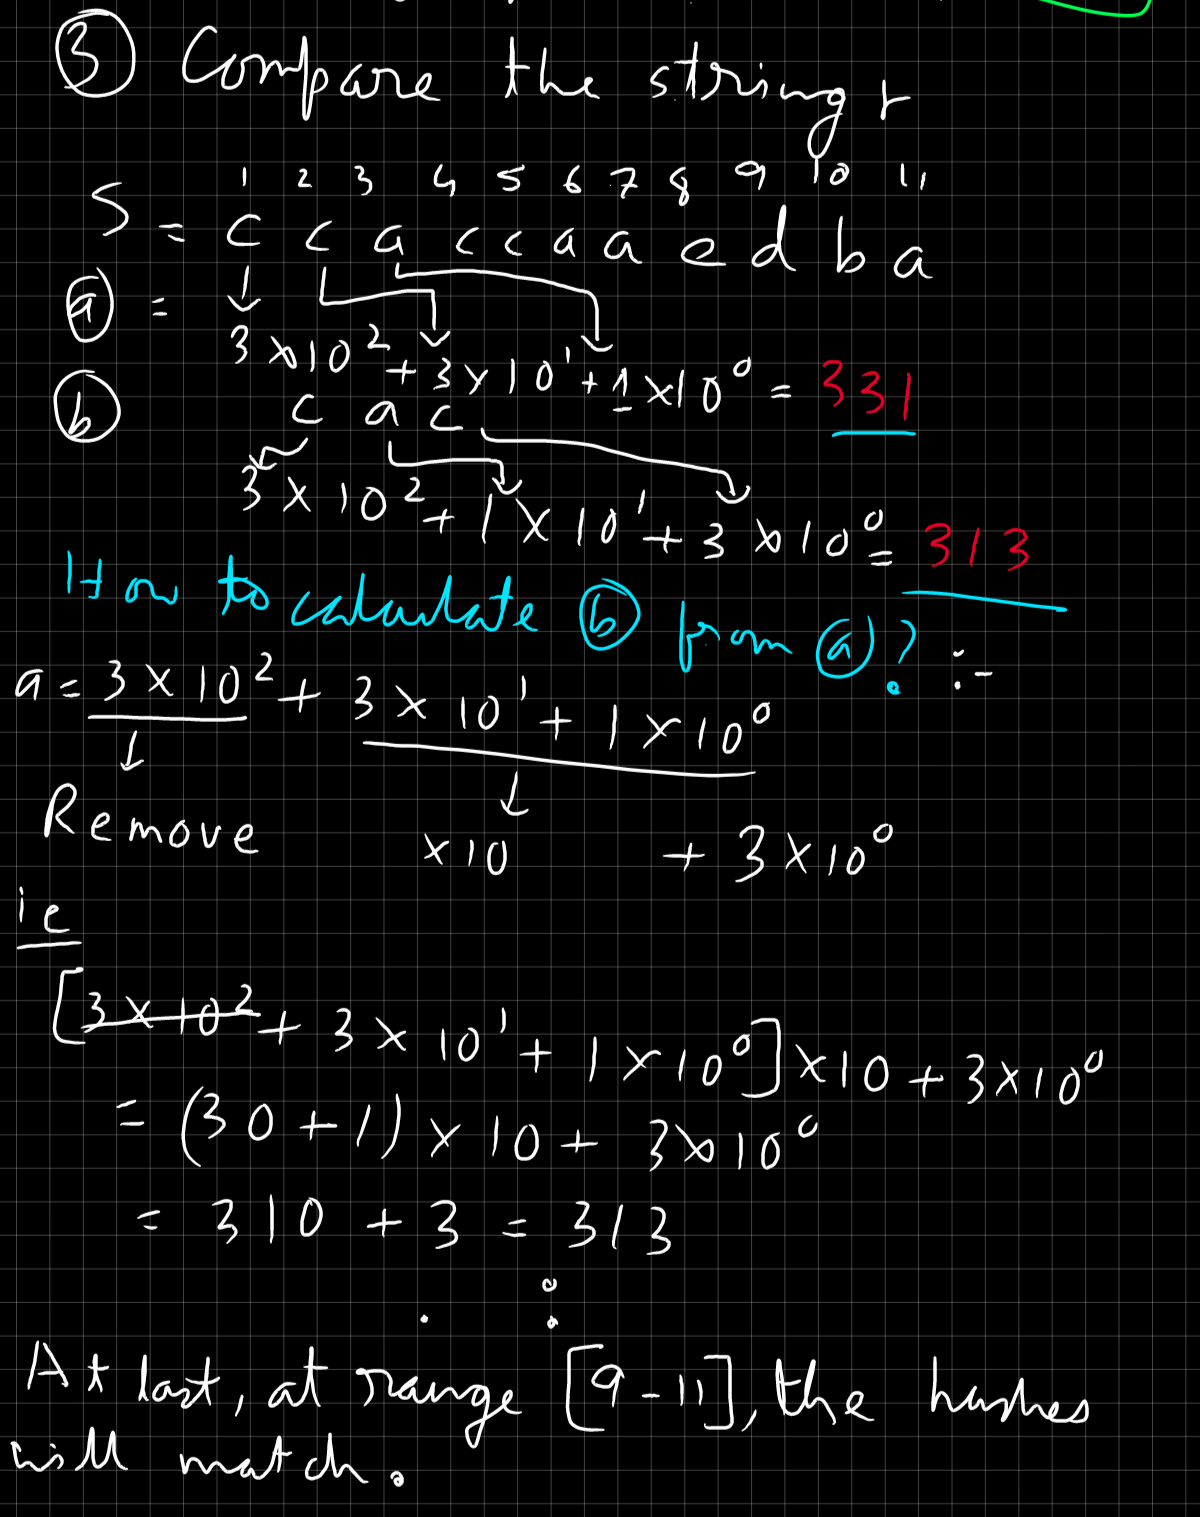 ③ Compare the string :-
1 2 3 4 5 6 7 8 9 10 11
S = c c a c c a a e d b a
ⓐ = 3 × 10² + 3 × 10¹ + 1 × 10⁰ = 331
ⓑ c a c
3 × 10² + 1 × 10¹ + 3 × 10⁰ = 313
How to calculate ⓑ from ⓐ? :-
a = 3 × 10² + 3 × 10¹ + 1 × 10⁰
↓ ↓
Remove × 10 + 3 × 10⁰
ie
[3 × 10² + 3 × 10¹ + 1 × 10⁰] × 10 + 3 × 10⁰
= (30 + 1) × 10 + 3 × 10⁰
= 310 + 3 = 313
At last, at range [9 - 11], the hashes
will match.